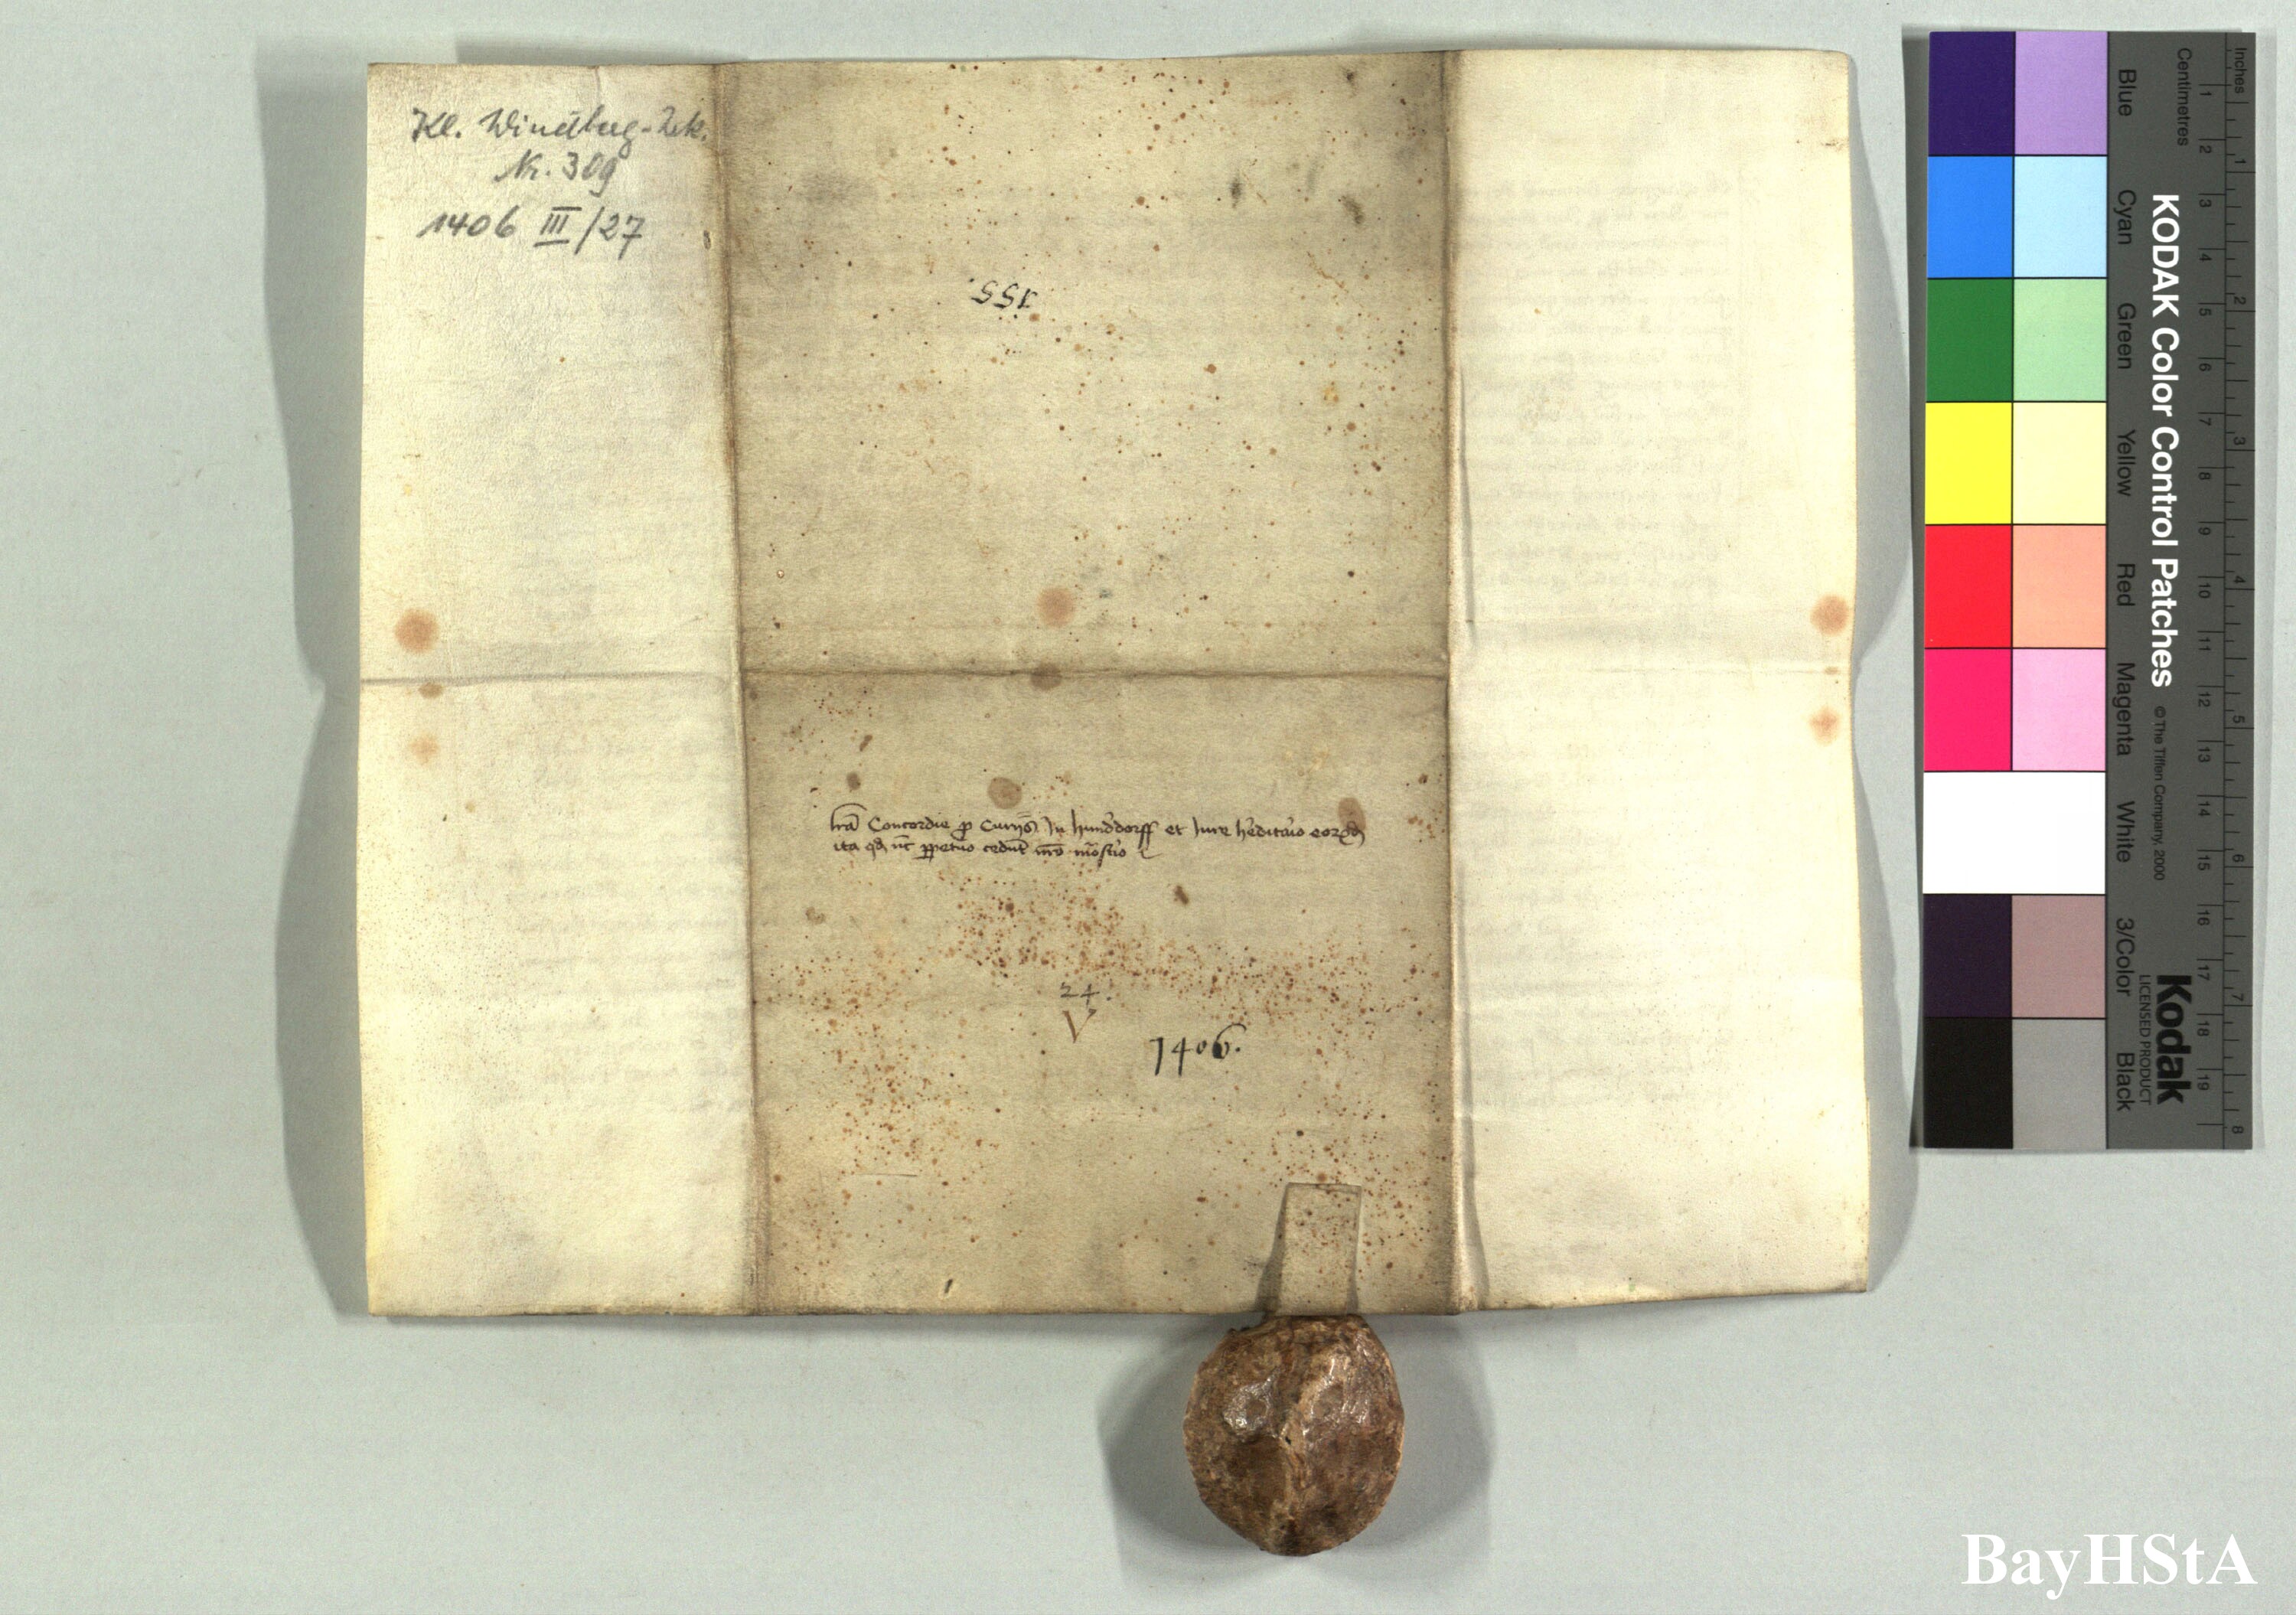 Kl. Windberg-Urk.
Nr. 309
1406 III/27
155.
lrã Concordie p Curijs In hunddorff et Jure h'editaio eorꝫdē
ita qd nc ppetuo cedūt nro mōstio
24.
V
1406.
KODAK Color Control Patches
© The Tiffen Company, 2000
Kodak
LICENSED PRODUCT
Inches
Centimetres
1 2 3 4 5 6 7 8 9 10 11 12 13 14 15 16 17 18 19
1 2 3 4 5 6 7 8
Blue
Cyan
Green
Yellow
Red
Magenta
White
3/Color
Black
BayHStA